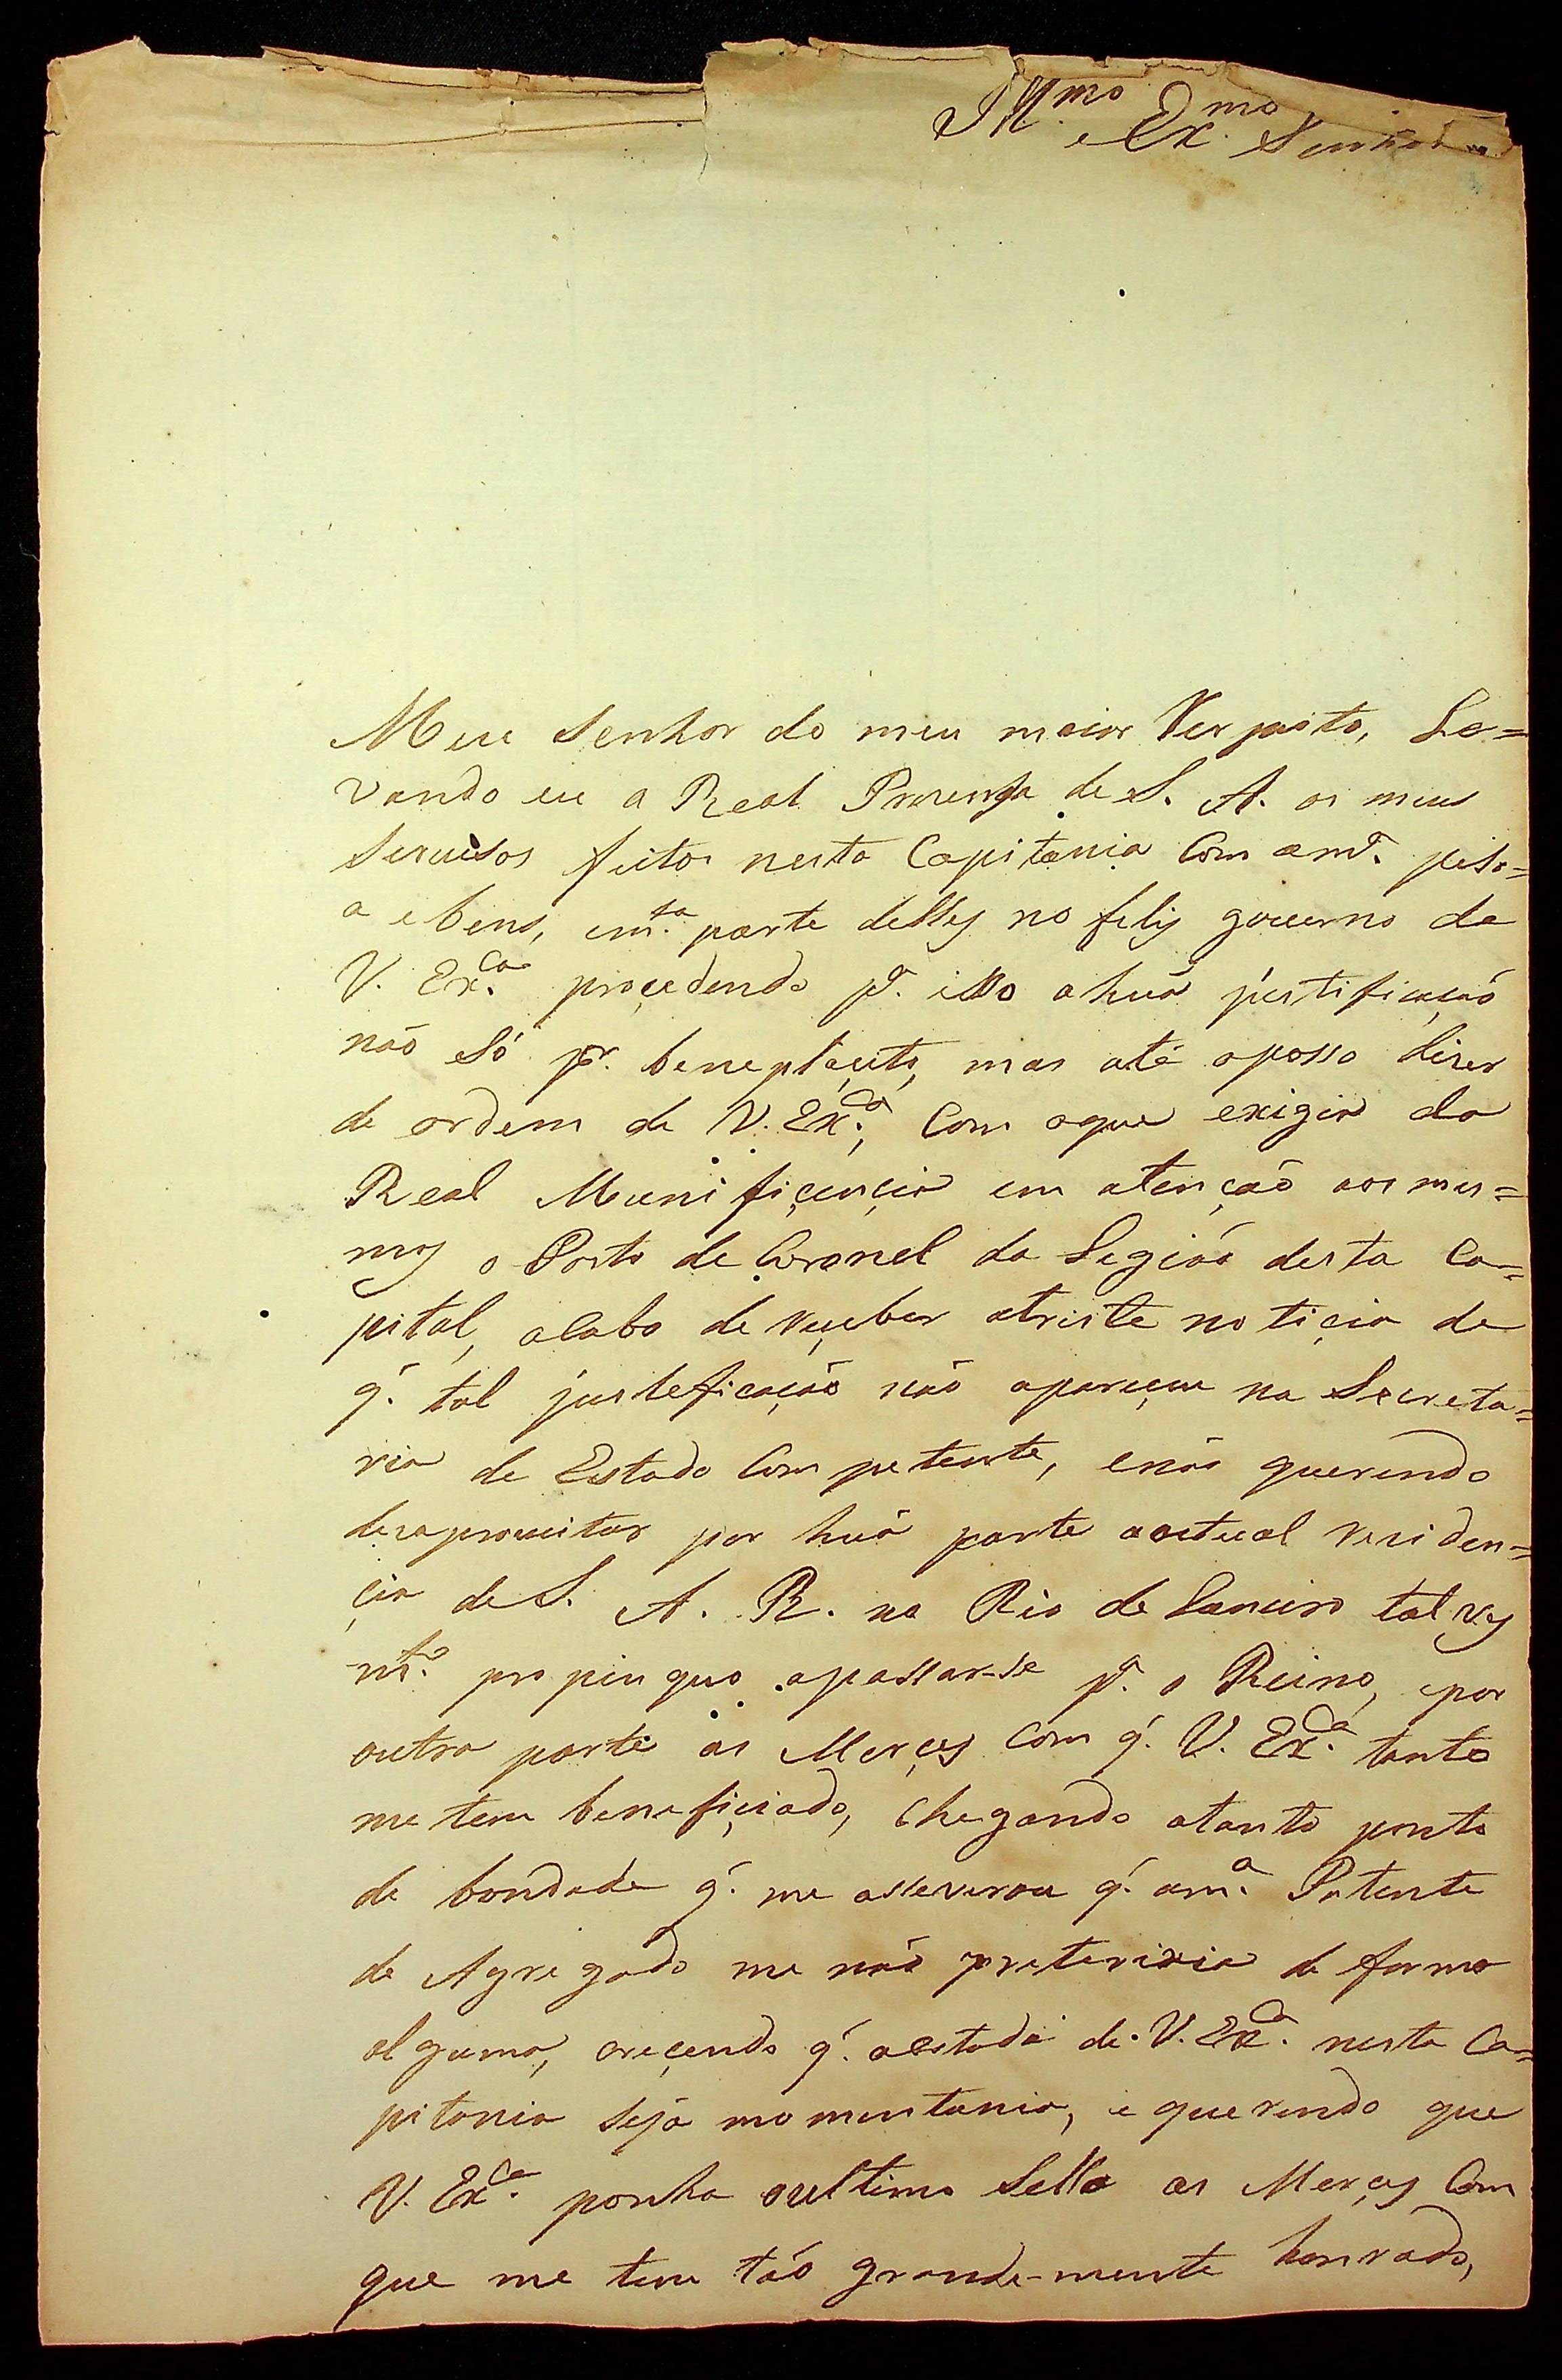 Ill.mo e Ex.mo Senhor
Meu Senhor do meu maior Respeito, Le=
vando eu a Real Prezença de S. A. os meus
servisos feitos nesta Capitania Com am.ª peso=
a e bens, em.ta parte delles no felis governo de
V. Ex.ca procedendo p.ª isso a huã justificaçaõ
naõ só p.r beneplaçito, mas até oposso dizer
de ordem de V. Ex.ca, Com oque exigia da
Real Munifiçençia em atençaõ aos mes=
mos o Posto de Coronel da Legiaõ desta Ca=
pital, acabo de reçeber atriste notiçia de
q. tal justeficaçaõ naõ apareçeu na Secreta=
ria de Estado Competente, enaõ querendo
desaproveitar por huã parte aactual residen=
çia de S. A. R. no Rio de Janeiro talves
m.to propinquo apassar-se p.ª o Reino, epor
outra parte as Merçes Com q. V. Ex.ca tanto
me tem benefiçiado, Chegando atanto ponto
de bondade q. me asseverou q. am.ª Patente
de Agregado me naõ preteriria de forma
alguma, creçendo q. aestada de V. Ex.ca nesta Ca=
pitania seja momentania, e querendo que
V. Ex.ca ponha oultimo Sello as Merçes Com
que me tem taõ grande-mente honrado,